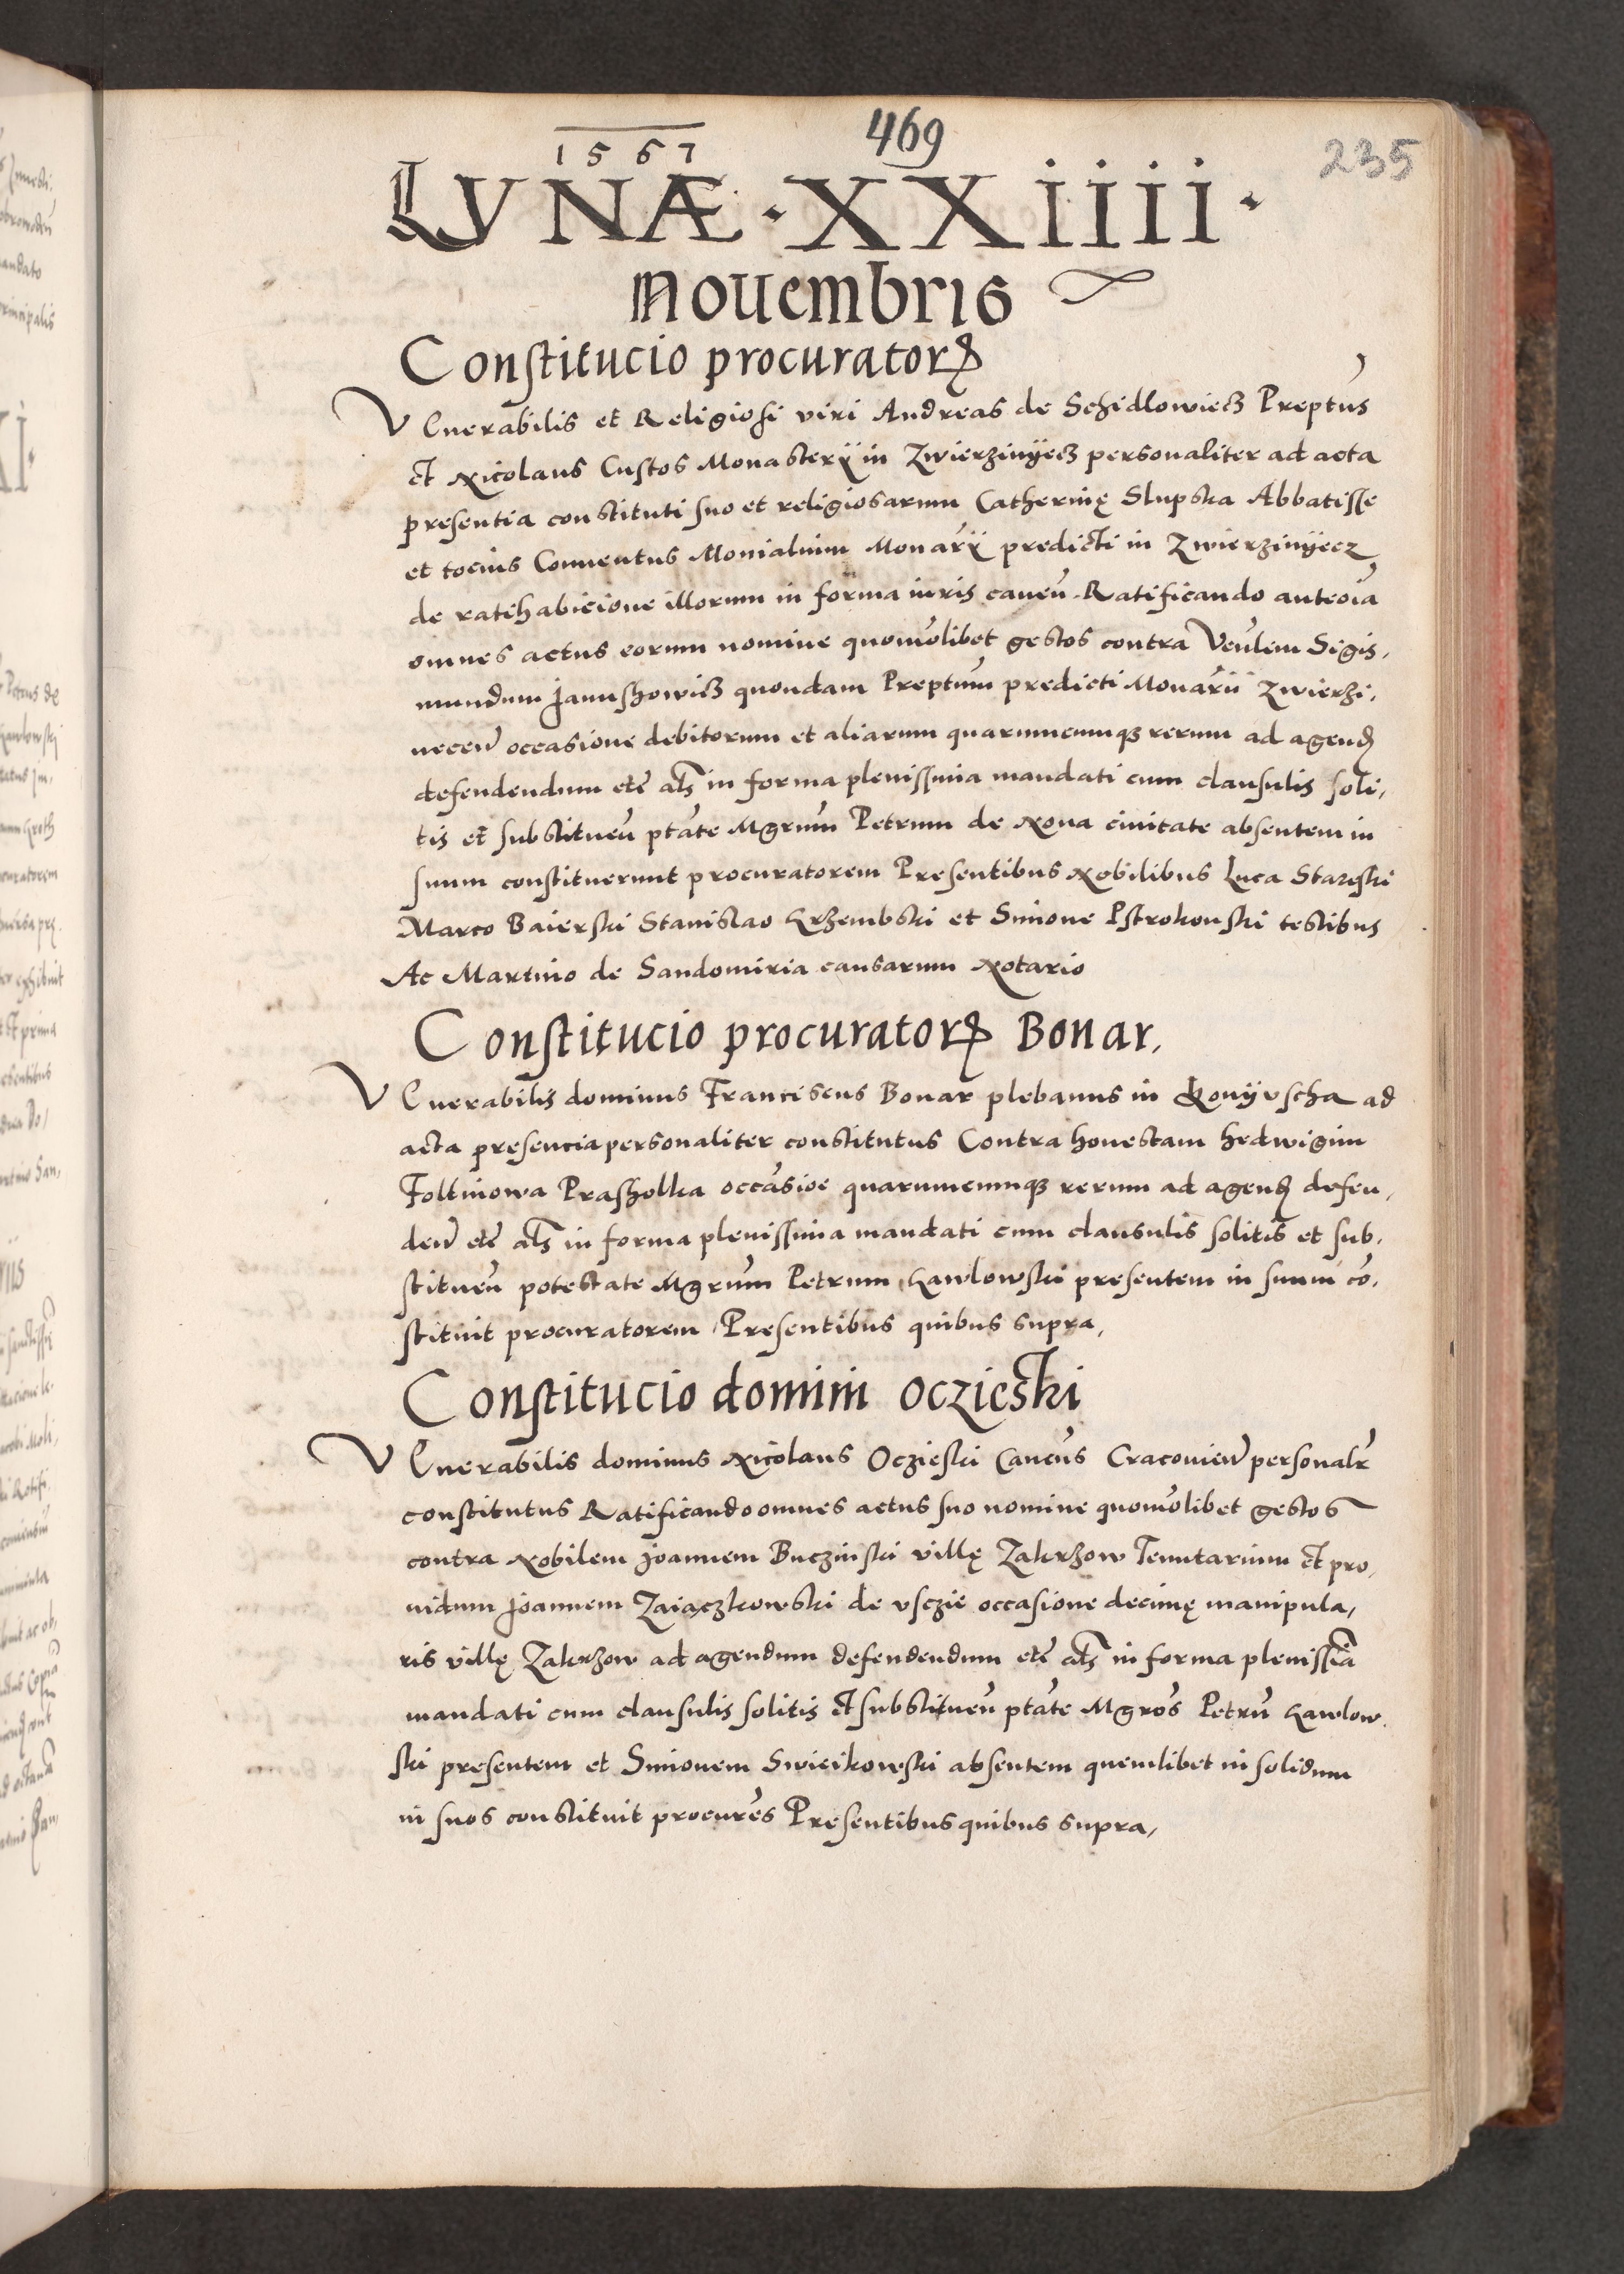 469
235
1567
LVNÆ · XXIIII ·
Nouembris
Constitucio procuratorꝝ
Venerabilis et Religiosi viri Andreas de Schidlowiecz Preptus
et Nicolaus Custos Monasterÿ in Zwierzinÿecz personaliter ad acta
presentia constituti suo et religiosarum Catherinę Slupska Abbatisse
et tocius Conuentus Monialium Monarÿ predicti in Zwierzinÿecz
de ratihabicione illorum in forma iuris caueñ Ratificando anteoia
omnes actus eorum nomine quomolibet gestos contra Venlem Sigis,
mundum Januszowicz quondam Preptum predicti Monarii Zwierzi,
neceñ occasione debitorum et aliarum quarumcumqꝫ rerum ad agenđ
defendendum etc als in forma plenissima mandati cum clausulis soli,
tis et substitueñ ptate Mgrum Petrum de Noua ciuitate absentem in
suum constituerunt procuratorem Presentibus Nobilibus Luca Starzski
Marco Baierski Stanislao Krzembski et Simone Pstrokonski testibus
Ac Martino de Sandomiria causarum Notario
Constitucio procuratorꝝ Bonar,
Venerabilis dominus Franciscus Bonar plebanus in ad
acta presencia personaliter constitutus Contra honestam hedwigim
Foltinowa Praszolka occasioe quarumcumqꝫ rerum ad agenđ defen,
deñ etc als in forma plenissima mandati cum clausulis solitis et sub,
stitueñ potestate Mgrum Petrum Kawlowski presentem in suum co,
stituit procuratorem Presentibus quibus supra,
Constitucio domini Oczieski
Venerabilis dominus Nicolaus Oczieski Cancus Cracouieñ personalr
constitutus Ratificando omnes actus suo nomine quomolibet gestos
contra Nobilem Joannem Buczinski villę Zakrzow Tenutarium et pro,
uidum Joannem Zaiączkowski de vsczie occasione decimę manipula,
ris villę Zakrzow ad agendum defendendum etc als in forma plenissia
mandati cum clausulis solitis et substitueñ ptate Mgros Petrū Kawlow,
ski presentem et Simonem Swicikowski absentem quemlibet in solidum
in suos constituit procures Presentibus quibus supra,